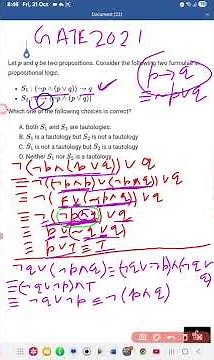 8:46 Fri, 31 Oct
Document (22)
GATE2021
Let p and q be two propositions. Consider the following two formulae in
propositional logic.
• S₁ : (¬p ∧ (p ∨ q)) → q
p → q
≡ ¬p ∨ q
Which one of the following choices is correct?
A. Both S₁ and S₂ are tautologies.
B. S₁ is a tautology but S₂ is not a tautology
C. S₁ is not a tautology but S₂ is a tautology
D. Neither S₁ nor S₂ is a tautology
¬(¬p ∧ (p ∨ q)) ∨ q
≡ ¬((¬p ∧ p) ∨ (¬p ∧ q)) ∨ q
≡ ¬(F ∨ (¬p ∧ q)) ∨ q
≡ ¬(¬p ∧ q) ∨ q
≡ p ∨ (¬q ∨ q)
≡ p ∨ T ≡ T
¬q ∨ (¬p ∧ q) ≡ (¬q ∨ ¬p) ∧ (¬q ∨ q)
≡ (¬q ∨ ¬p) ∧ T
≡ ¬q ∨ ¬p ≡ ¬(p ∧ q)